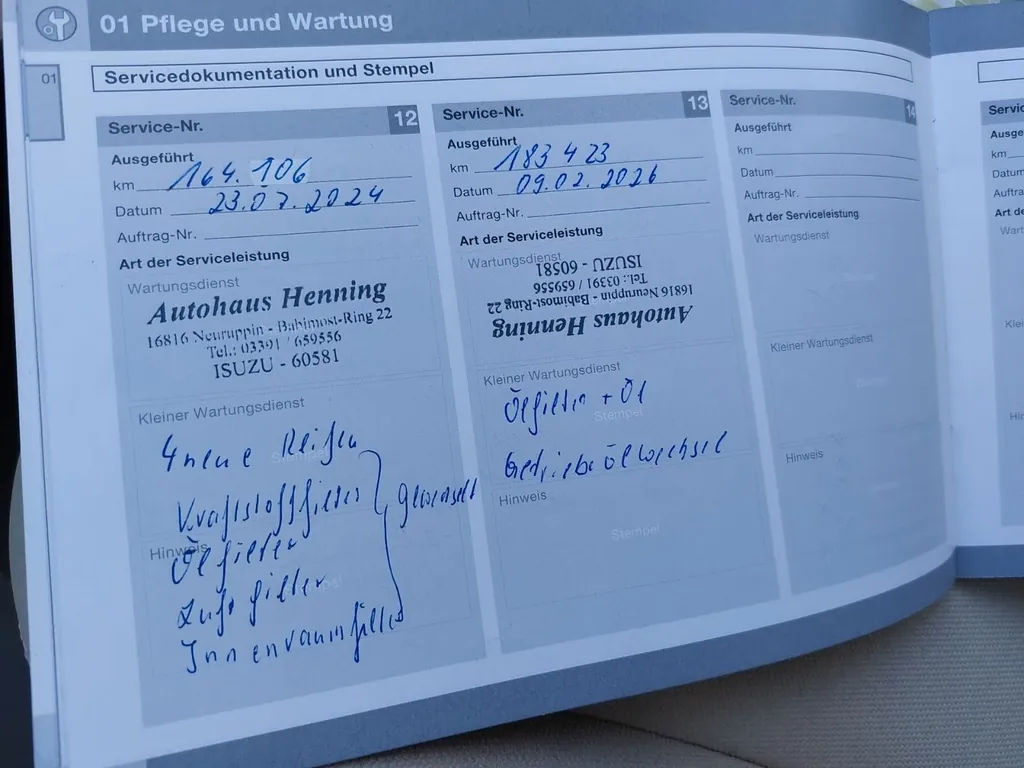 01 Pflege und Wartung
01
Servicedokumentation und Stempel
Service-Nr. 12
Ausgeführt
km 164.106
Datum 23.07.2024
Auftrag-Nr.
Art der Serviceleistung
Wartungsdienst
Autohaus Henning
16816 Neuruppin - Babimost-Ring 22
Tel.: 03391 / 659556
ISUZU - 60581
Kleiner Wartungsdienst
4 neue Reifen
Kraftstofffilter
gewechselt
Hinweis
Ölfilter
Luftfilter
Innenraumfilter
Service-Nr. 13
Ausgeführt
km 183 423
Datum 09.02.2026
Auftrag-Nr.
Art der Serviceleistung
Wartungsdienst
Autohaus Henning
16816 Neuruppin - Babimost-Ring 22
Tel.: 03391 / 659556
ISUZU - 60581
Kleiner Wartungsdienst
Ölfilter + Öl
Stempel
Getriebeölwechsel
Hinweis
Stempel
Service-Nr. 14
Ausgeführt
km
Datum
Auftrag-Nr.
Art der Serviceleistung
Wartungsdienst
Kleiner Wartungsdienst
Hinweis